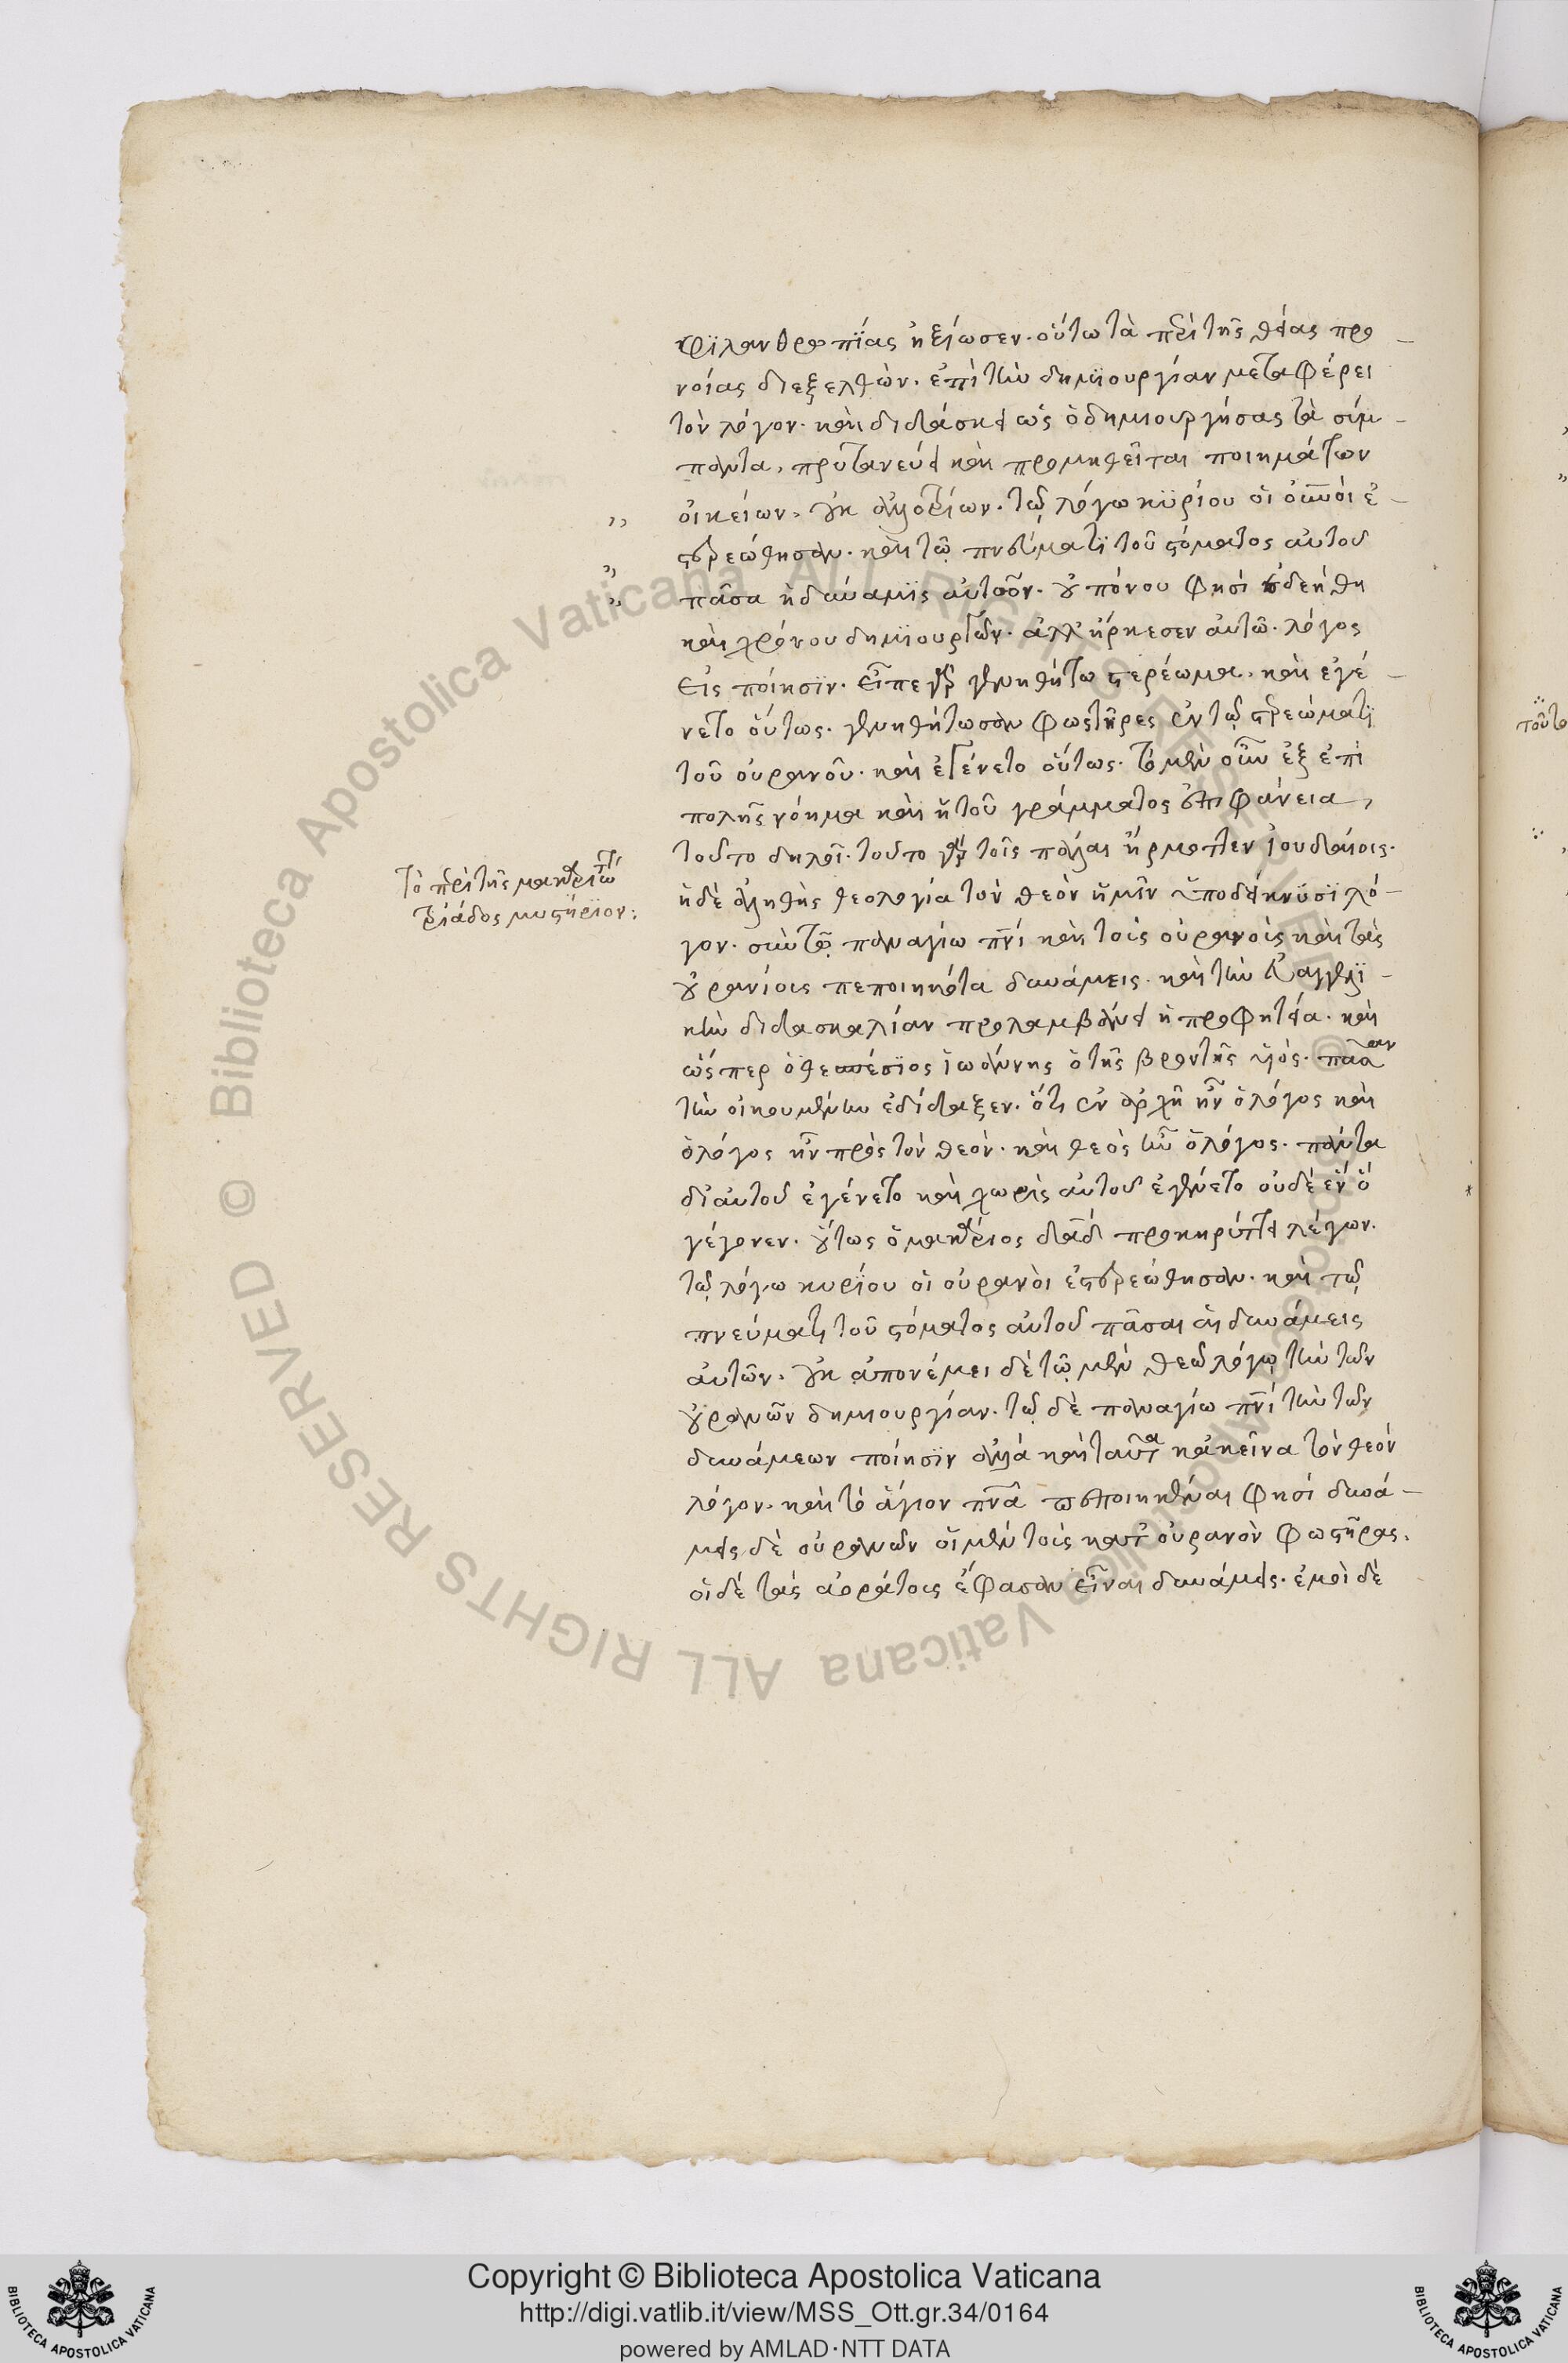 φϊλανθρωπίας ἠξίωσεν. οὕτω τὰ περὶ τῆς θείας προ-
νοίας διεξελθὼν. ἐπὶ τὴν δημϊουργίαν μεταφέρει
τὸν λόγον. καὶ διδάσκει ὡς ὁ δημιουργήσας τὰ σύμ-
παντα, πρυτανεύει καὶ προμηθεῖται ποιημάτων
οἰκείων, οὐκ ἀλλοτρίων. τῷ λόγω κυρίου οἱ οὐνοί ἐ-
στερεώθησαν. καὶ τῷ πνεύματϊ τοῦ στόματος αὐτοῦ
πᾶσα ἡ δύναμϊς αὐτῶν. οὐ πόνου φησί ἐδεήθη
καὶ χρόνου δημϊουργῶν. ἀλλ' ἤρκεσεν αὐτῶ. λόγος
εἰς ποίησϊν. εἶπε γὰρ γενηθήτω στερέωμα. καὶ ἐγέ-
νετο οὕτως. γενηθήτωσαν φωστῆρες ἐν τῷ στερεώματϊ
τοῦ οὐρανοῦ. καὶ ἐγένετο οὕτως. τὸ μὲν οὖν ἐξ ἐπι
πολῆς νόημα καὶ ἡ τοῦ γράμματος ἐπιφάνεια,
τοῦτο δηλοῖ. τοῦτο γὰρ τοῖς πάλαι ἥρμοττεν ἰουδαίοις.
ἡ δὲ ἀληθὴς θεολογία τὸν θεὸν ἡμῖν ὑποδείκνϋσϊ λό-
γον. σὺν τῷ παναγίω πνί καὶ τοὺς οὐρανοὺς καὶ τὰς
οὐρανίοις πεποιηκότα δυνάμεις. καὶ τὴν εὐαγγελϊ-
κὴν διδασκαλίαν προλαμβάνει ἡ προφητεία. καὶ
ὥσπερ ὁ θεσπέσϊος ἰωάννης ὁ τῆς βροντῆς υἱὸς. πᾶσαν
τὴν οἰκουμένην ἐδίδαξεν. ὅτι ἐν ἀρχῇ ἦν ὁ λόγος καὶ
ὁ λόγος ἦν πρὸς τὸν θεὸν. καὶ θεὸς ἦν ὁ λόγος. πάντα
δι αὐτοῦ ἐγένετο καὶ χωρὶς αὐτοῦ ἐγένετο οὐδὲ ἕν ὅ
γέγονεν. οὕτως ὁ μακάριος δᾱδ προκηρύττει λέγων.
τῷ λόγω κυρίου οἱ οὐρανὸι ἐστερεώθησαν. καὶ τῷ
πνεύματι τοῦ στόματος αὐτοῦ πᾶσαι αἱ δυνάμεις
αὐτῶν. οὐκ ἀπονέμει δὲ τῷ μὲν θεῷ λόγῳ τὴν τῶν
οὐρανῶν δημιουργίαν. τῷ δὲ παναγίω πνί τὴν τῶν
δυνάμεων ποίησϊν ἀλλὰ καὶ ταῦτα κἀκεῖνα τὸν θεὸν
λόγον. καὶ τὸ ἅγιον πνᾶ πεποιηκέναι φησί δυνά-
μεις δὲ οὐρανῶν οἱ μὲν τοὺς κατ' οὐρανὸν φωστῆρας.
οἱ δὲ τὰς ἀοράτοις ἔφασαν εἶναι δυνάμεις. ἐμοὶ δὲ
Τὸ περὶ τῆς μακαριωτ
τριάδος μυστήριον:
Copyright © Biblioteca Apostolica Vaticana
http://digi.vatlib.it/view/MSS_Ott.gr.34/0164
powered by AMLAD·NTT DATA
BIBLIOTECA APOSTOLICA VATICANA
BIBLIOTECA APOSTOLICA VATICANA
© Biblioteca Apostolica Vaticana ALL RIGHTS RESERVED © Biblioteca Apostolica Vaticana ALL RIGHTS RESERVED